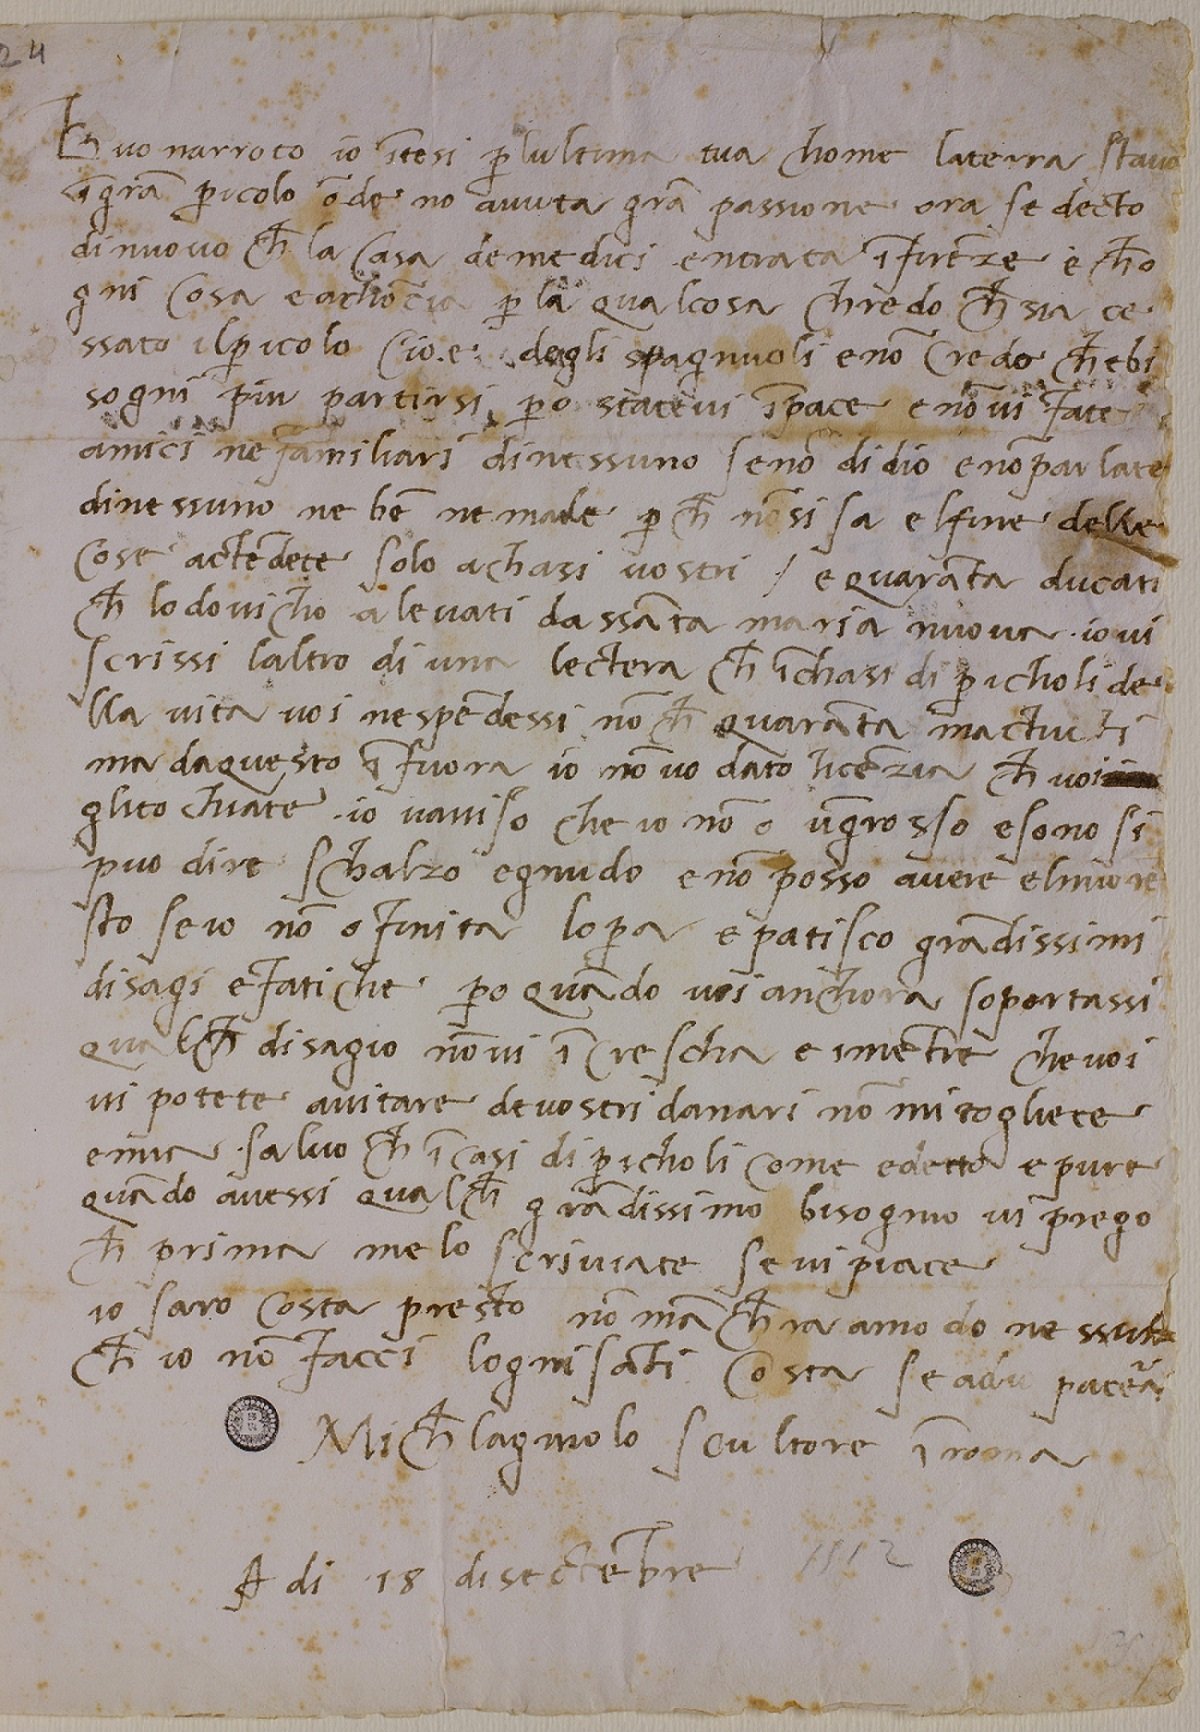 24
Buonarroto io ītesi p̱ lultima tua chome laterra stava
ī grā p̱icolo ōde no avuta grā passione ora se decto
dinuovo ch̄ la casa demedici entrata ī firēze e ch̄ o
gni cosa e achōcia p̱ la qualcosa chredo ch̄ sia ce
ssato ilp̱icolo cioe degli spagnuoli e nō credo ch̄ ebi
sogni piu partirsi p̱o statevi īpace e nō vi fate
amici ne familiari dinessuno se nō didio e nō parlate
dinessuno ne bē ne male p̱ ch̄ nō si sa elfine delle
cose actēdete solo achasi vostri / e quarāta ducati
ch̄ lodovicho a levati dassāta maria nuova io vi
scrissi laltro di una lectera ch̄ īchasi di p̱icholi de
lla vita voi nespēdessi nō ch̄ quarāta ma tucti
ma daquesto ī fuora io nō vo dato licēzia ch̄ voi
gli tochiate io vaviso che io nō o ū grosso e sono si
puo dire schalzo e gnudo e nō posso avere elmio re
sto se io nō o finita lop̱a e patisco grādissimi
disagi e fatiche p̱o quādo voi anchora soportassi
qualch̄ disagio nō vi ī crescha e imētre che voi
vi potete aiutare de vostri danari nō mi togliete
e mia salvo ch̄ ī casi di p̱icholi come e decto e pure
quādo avessi qualch̄ grādissimo bisognio vi priego
ch̄ prima me lo scriviate se vi piace
io saro costa presto nō māch̄ra amodo nessuno
ch̄ io nō facci lognisāti costa se a dio
Mich̄lagniolo scultore ī roma
A di 18 di sectēbre 1512